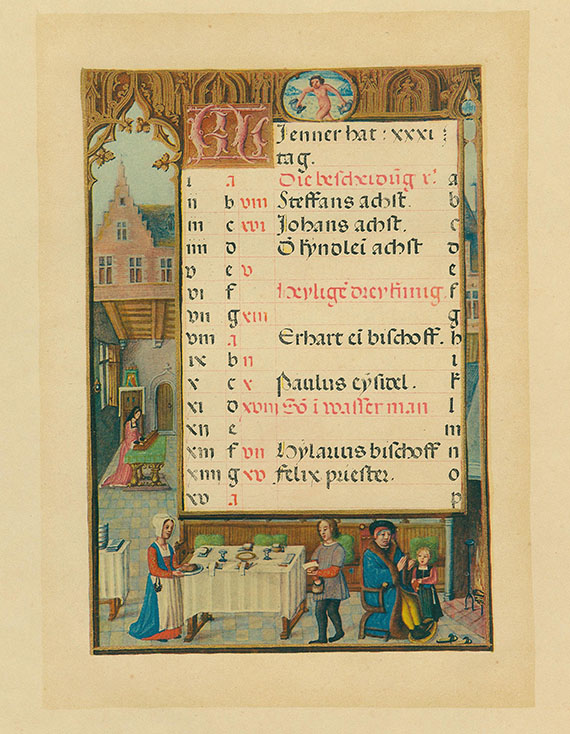 KL Jenner hat : xxxi :
tag.
i a Die bescheidūg x' a
ii b viii Steffans achst. b
iii c xvi Johans achst. c
iiii d Ō kyndlei achst d
v e v e
vi f Heylige drey kinig. f
vii g xiii g
viii a Erhart ei bischoff. h
ix b ii i
x c x Paulus eysidel. k
xi d xviii Sō i wasser man l
xii e m
xiii f vii Hylarius bischoff n
xiiii g xv Felix priester. o
xv a p